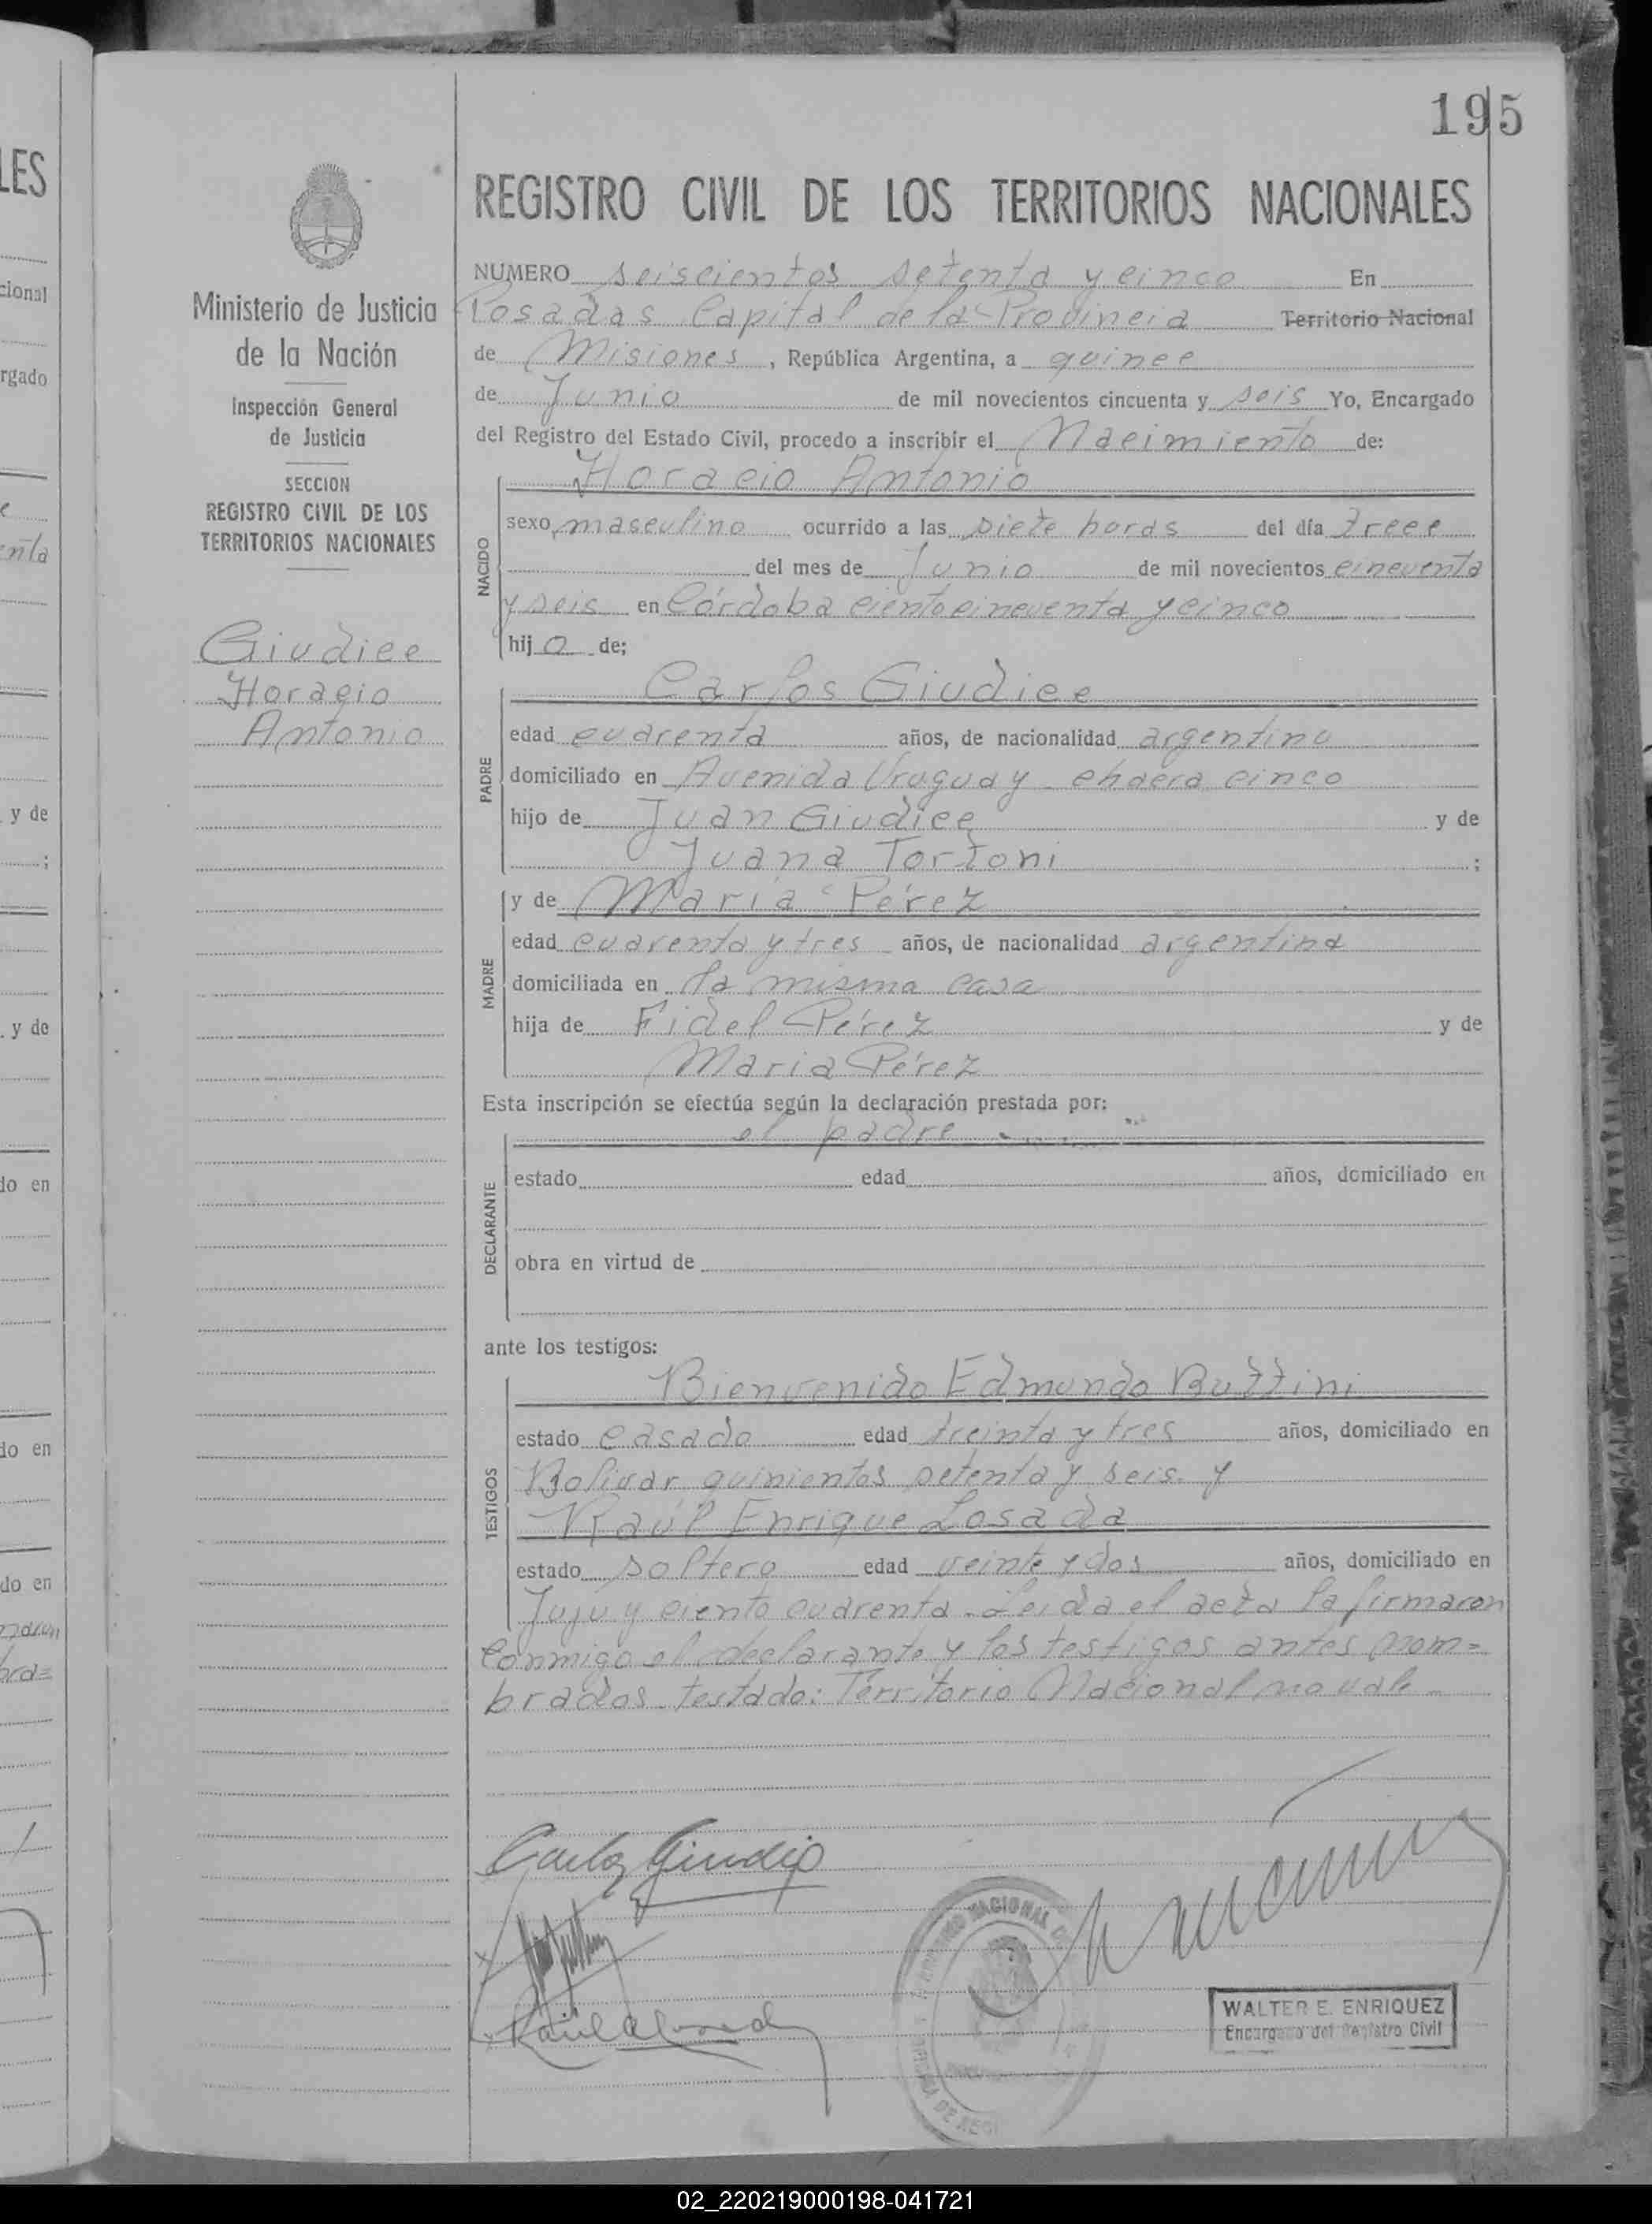 195
LES
cional
rgado
y de
y de
do en
do en
do en
Ministerio de Justicia
de la Nación
Inspección General
de Justicia
SECCION
REGISTRO CIVIL DE LOS
TERRITORIOS NACIONALES
Giudice
Horacio
Antonio
REGISTRO CIVIL DE LOS TERRITORIOS NACIONALES
NUMERO seiscientos setenta y cinco En
Posadas Capital de la Provincia Territorio Nacional
de Misiones, República Argentina, a quince
de Junio de mil novecientos cincuenta y seis Yo, Encargado
del Registro del Estado Civil, procedo a inscribir el Nacimiento de:
NACIDO
Horacio Antonio
sexo masculino ocurrido a las siete horas del día trece
del mes de Junio de mil novecientos cincuenta
y seis en Córdoba ciento cincuenta y cinco
hijo de;
PADRE
Carlos Giudice
edad cuarenta años, de nacionalidad argentino
domiciliado en Avenida Uruguay chacra cinco
hijo de Juan Giudice y de
Juana Tortoni ;
MADRE
y de María Pérez
edad cuarenta y tres años, de nacionalidad argentina
domiciliada en la misma casa
hija de Fidel Pérez y de
Maria Pérez
Esta inscripción se efectúa según la declaración prestada por:
DECLARANTE
el padre
estado edad años, domiciliado en
obra en virtud de
ante los testigos:
TESTIGOS
Bienvenido Edmundo Buttini
estado casado edad treinta y tres años, domiciliado en
Bolivar quinientos setenta y seis y
Raúl Enrique Losada
estado soltero edad veinte y dos años, domiciliado en
Jujuy ciento cuarenta. Leida el acta la firmaron
conmigo el declarante y los testigos antes nom=
brados. testado: Territorio Nacional no vale
Carlos Giudice
WALTER E. ENRIQUEZ
Encargado del Registro Civil
02_220219000198-041721